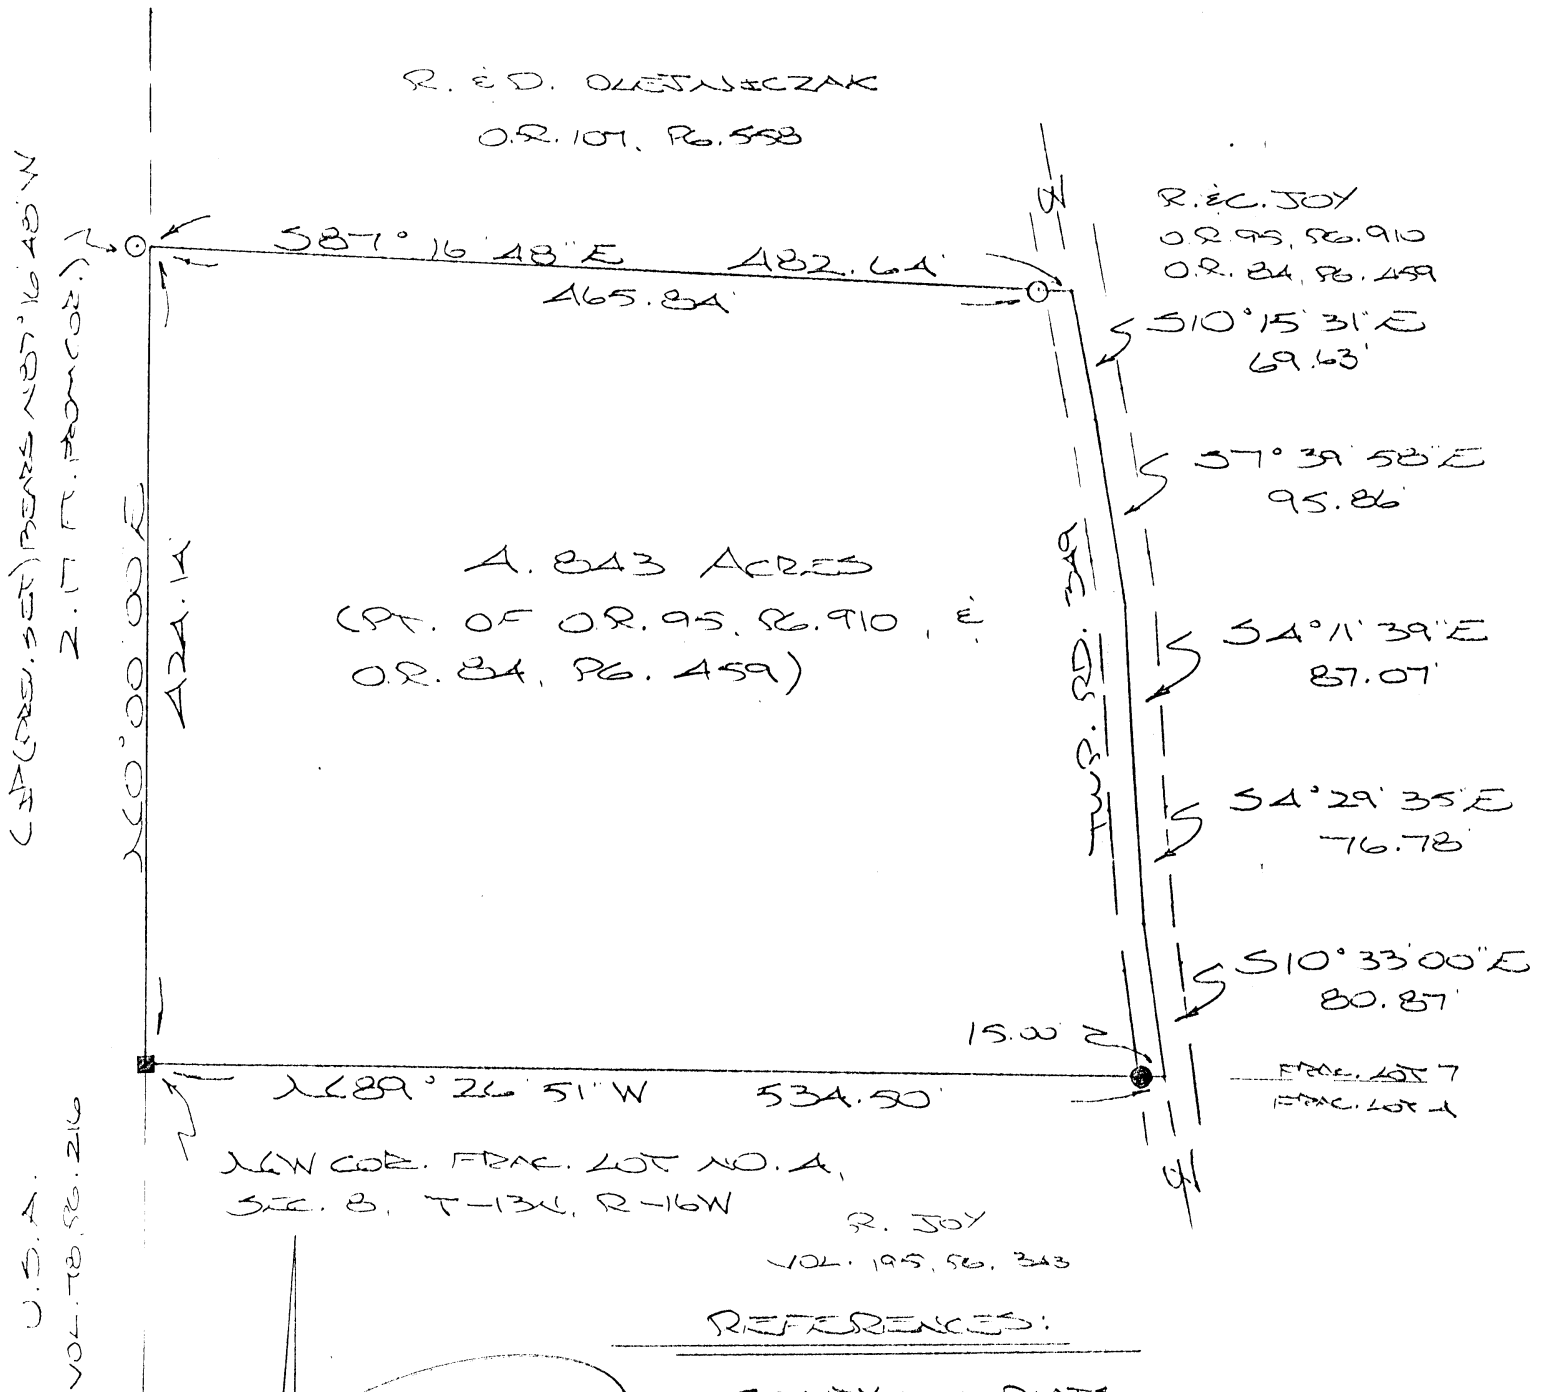 R. & D. OLEJNICZAK
O.R. 107, PG. 558
℄
R. & C. JOY
O.R. 95, PG. 910
O.R. 84, PG. 459
S87° 16' 48" E 482.64'
465.84'
S10° 15' 31" E
69.63'
S7° 39' 58" E
95.86'
S4° 11' 39" E
87.07'
S4° 29' 35" E
76.78'
S10° 33' 00" E
80.87'
(IP (PREV. SET) BEARS N87° 16' 48" W
2.17 FT. FROM COR.)
N0° 00' 00" E
424.14'
4.843 ACRES
(PT. OF O.R. 95, PG. 910, &
O.R. 84, PG. 459)
TWP. RD. 349
15.00'
N89° 26' 51" W 534.50'
FRAC. LOT 7
FRAC. LOT 4
NW COR. FRAC. LOT NO. 4,
SEC. 8, T-13N, R-16W
℄
R. JOY
VOL. 195, PG. 343
U.S.A.
VOL. 78, PG. 216
REFERENCES: